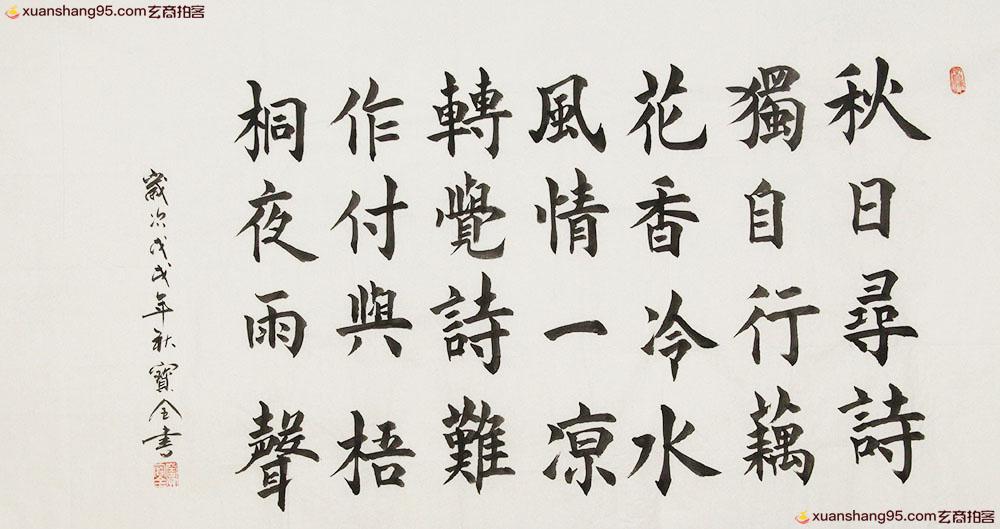 xuanshang95.com玄商拍客
xuanshang95.com玄商拍客
秋日尋詩
獨自行藕
花香冷水
風情一凉
轉覺詩難
作付與梧
桐夜雨聲
歲次戊戌年秋寶全書
xuanshang95.com玄商拍客